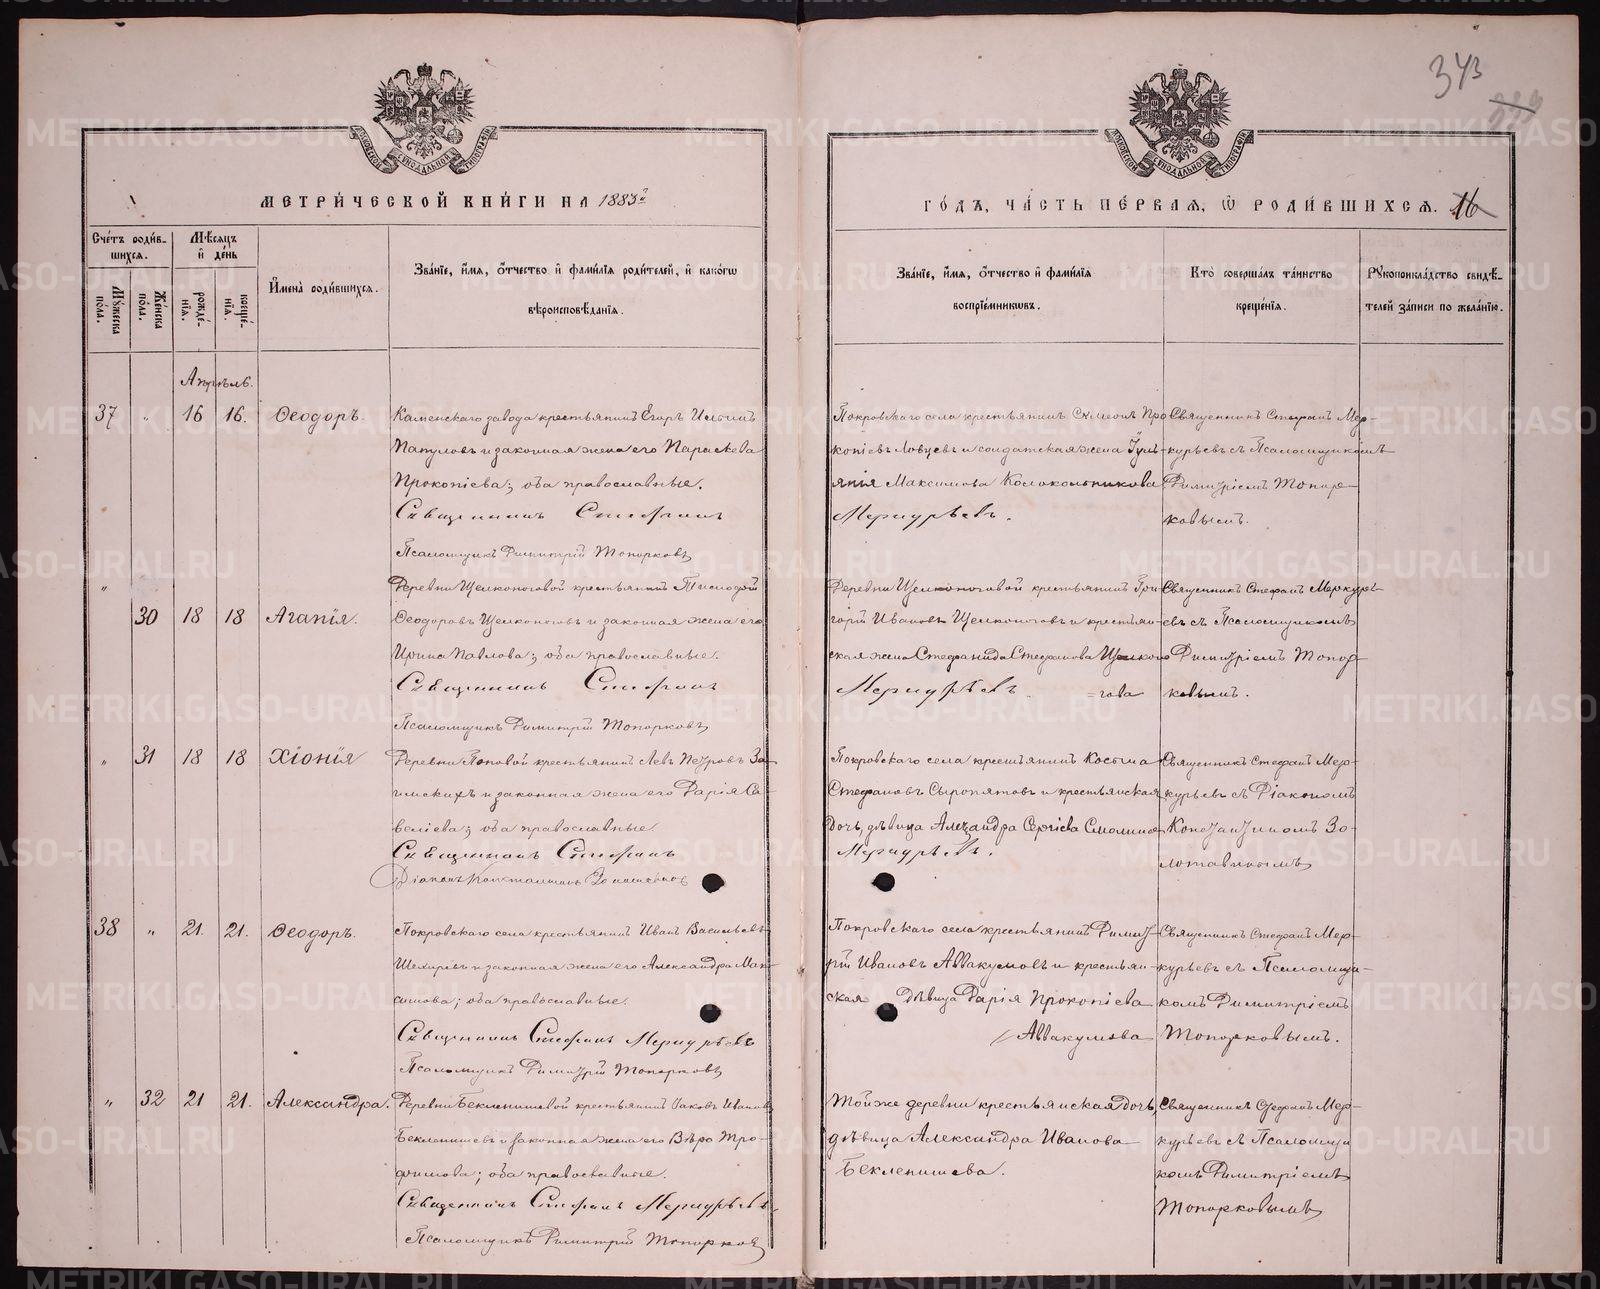 343
МЕТРИ́ЧЕСКОЙ КНИ́ГИ НА 1883й
ГО́ДЪ, ЧА́СТЬ ПЕ́РВАЯ, Ѡ РОДИ́ВШИХСЯ. 16
Сче́тъ роди́в-
шихся.
Му́жеска по́ла.
Же́нска по́ла.
Мѣ́сяцъ и҆ де́нь
рожде́нїя.
креще́нїя.
И҆мена̀ роди́вшихся.
Зва́нїе, и҆́мя, ѻ҆́тчество и҆ фами́лїя роди́телей, и҆ како́гѡ
вѣроисповѣ́данїя.
Зва́нїе, и҆́мя, ѻ҆́тчество и҆ фами́лїя
воспрїе́мникѡвъ.
Кто̀ соверша́лъ та́инство
креще́нїя.
Рꙋкоприкла́дство свидѣ́-
телей за́писи по жела́нїю.
Апрѣль.
37 " 16 16. Ѳеодоръ.
Каменскаго завода крестьянинъ Егоръ Ильинъ
Папуловъ и законная жена его Параскева
Прокопіева; оба православные.
Священникъ Стефанъ Меркурьевъ.
Псаломщикъ Димитрій Топорковъ
Покровскаго села крестьянинъ Симеонъ Про
копіевъ Ловцевъ и солдатская жена Іулі-
анія Максимова Колокольникова
Священникъ Стефанъ Мер-
курьевъ съ Псаломщикомъ
Димитріемъ Топор-
ковымъ.
" 30 18 18 Агапія.
Деревни Щелконоговой крестьянинъ
Ѳеодоровъ Щелконоговъ и законная жена его
Ирина Павлова; оба православные.
Священникъ Стефанъ Меркурьевъ
Псаломщикъ Димитрій Топорковъ
Деревни Щелконоговой крестьянинъ Гри-
горій Ивановъ Щелконоговъ и крестьян-
ская жена Стефанида Стефанова Щелконо
=гова
Священникъ Стефанъ Меркурь-
евъ съ Псаломщикомъ
Димитріемъ Топор-
ковымъ.
" 31 18 18 Хіонія
Деревни Поповой крестьянинъ Левъ Петровъ За-
имскихъ и законная жена его Дарія Са-
веліева; оба православные.
Священникъ Стефанъ Меркурьевъ.
Діаконъ Константинъ
Покровскаго села крестьянинъ Косьма
Стефановъ Сыропятовъ и крестьянская
дочь, дѣвица Александра Сергіева Смолина
Священникъ Стефанъ Мер-
курьевъ съ Діакономъ
Константиномъ Зо-
лотавинымъ
38 " 21. 21. Ѳеодоръ.
Покровскаго села крестьянинъ Иванъ Васильевъ
и законная жена его Александра Мак-
симова; оба православные.
Священникъ Стефанъ Меркурьевъ
Псаломщикъ Димитрій Топорковъ
Покровскаго села крестьянинъ Димит-
рій Ивановъ Аввакумовъ и крестьян-
ская дѣвица Дарія Прокопіева
Аввакумова
Священникъ Стефанъ Мер-
курьевъ съ Псаломщи-
комъ Димитріемъ
Топорковымъ.
" 32 21 21. Александра.
Деревни Бекленищевой крестьянинъ Іаковъ Ивановъ
Бекленищевъ и законная жена его Вѣра Тро-
фимова; оба православные.
Священникъ Стефанъ Меркурьевъ
Псаломщикъ Димитрій Топорковъ
Той же деревни крестьянская дочь,
дѣвица Александра Иванова
Бекленищева.
Священникъ Стефанъ Мер-
курьевъ съ Псаломщи
комъ Димитріемъ
Топорковымъ
METRIKI.GASO-URAL.RU